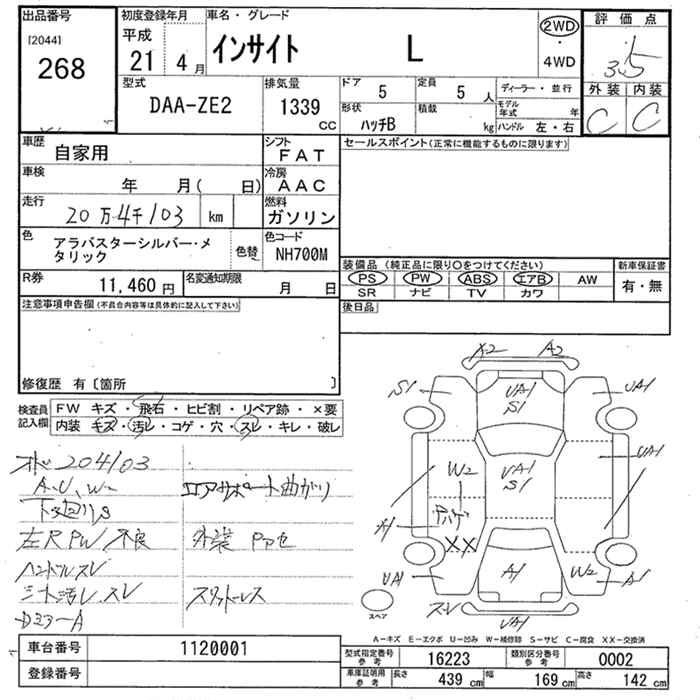 出品番号
[2044]
268
初度登録年月
平成
21 4月
車名・グレード
インサイト L
2WD
・
4WD
評価点
3.5
外装 内装
C C
型式
DAA-ZE2
排気量
1339
CC
ドア 5
定員 5人
ディーラー・並行
形状 ハッチB
積載 kg
モデル年式 年
ハンドル 左・右
車歴
自家用
シフト
FAT
セールスポイント(正常に機能するものに限ります)
車検
年 月( 日)
冷房
AAC
走行
20万4千103 km
燃料
ガソリン
色
アラバスターシルバー・メタリック
色替
色コード
NH700M
R券
11,460円
名変通知期限
月 日
装備品(純正品に限り○をつけてください)
新車保証書
PS PW ABS エアB AW
有・無
SR ナビ TV カワ
後日品
注意事項申告欄(不具合内容等は具体的に記入して下さい)
修復歴 有〔箇所 〕
検査員記入欄
FW キズ・飛石・ヒビ割・リペア跡・×要
内装 キズ・汚レ・コゲ・穴・スレ・キレ・破レ
204103
A.U.W
エアサポート曲がり
下廻りS
左R PW 不良
外装
ハンドルスレ
シート汚レ.スレ
スタッドレス
X2 A2
S1 UA1 UA1
S1
UA1
W2 UA1
S1
A1
XX
UA1 A1 W2 A1
スレ
UA1
スペア
A-キズ E-エクボ U-凹み W-補修跡 S-サビ C-腐食 XX-交換済
車台番号 1120001
登録番号
型式指定番号 参考 16223
類別区分番号 参考 0002
車庫証明用 参考 長さ 439 cm 幅 169 cm 高さ 142 cm